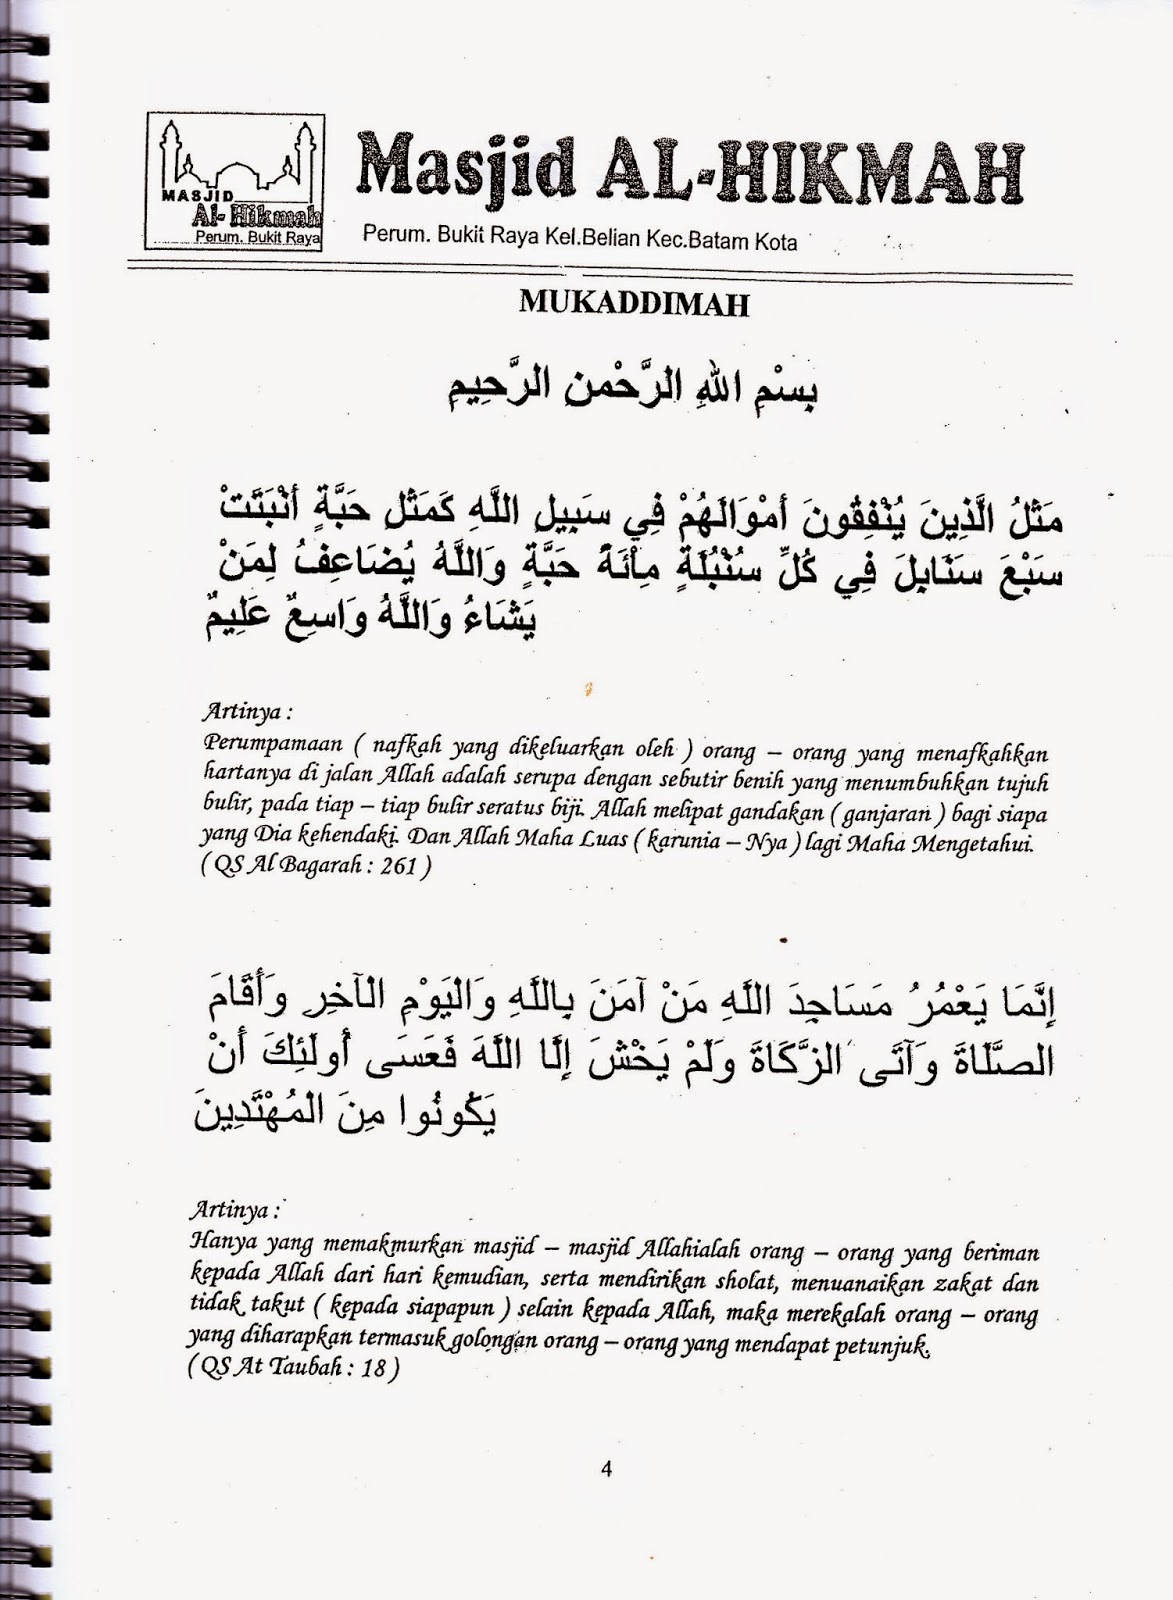 MASJID
Al- Hikmah
Perum. Bukit Raya
Masjid AL-HIKMAH
Perum. Bukit Raya Kel.Belian Kec.Batam Kota
MUKADDIMAH
بِسْمِ اللهِ الرَّحْمنِ الرَّحِيمِ
مَثَلُ الَّذِينَ يُنْفِقُونَ أَمْوَالَهُمْ فِي سَبِيلِ اللَّهِ كَمَثَلِ حَبَّةٍ أَنْبَتَتْ
سَبْعَ سَنَابِلَ فِي كُلِّ سُنْبُلَةٍ مِائَةُ حَبَّةٍ وَاللَّهُ يُضَاعِفُ لِمَنْ
يَشَاءُ وَاللَّهُ وَاسِعٌ عَلِيمٌ
Artinya :
Perumpamaan ( nafkah yang dikeluarkan oleh ) orang – orang yang menafkahkan
hartanya di jalan Allah adalah serupa dengan sebutir benih yang menumbuhkan tujuh
bulir, pada tiap – tiap bulir seratus biji. Allah melipat gandakan ( ganjaran ) bagi siapa
yang Dia kehendaki. Dan Allah Maha Luas ( karunia – Nya ) lagi Maha Mengetahui.
( QS Al Bagarah : 261 )
إِنَّمَا يَعْمُرُ مَسَاجِدَ اللَّهِ مَنْ آمَنَ بِاللَّهِ وَالْيَوْمِ الْآخِرِ وَأَقَامَ
الصَّلَاةَ وَآتَى الزَّكَاةَ وَلَمْ يَخْشَ إِلَّا اللَّهَ فَعَسَى أُولَئِكَ أَنْ
يَكُونُوا مِنَ الْمُهْتَدِينَ
Artinya :
Hanya yang memakmurkan masjid – masjid Allahialah orang – orang yang beriman
kepada Allah dari hari kemudian, serta mendirikan sholat, menuanaikan zakat dan
tidak takut ( kepada siapapun ) selain kepada Allah, maka merekalah orang – orang
yang diharapkan termasuk golongan orang – orang yang mendapat petunjuk.
( QS At Taubah : 18 )
4